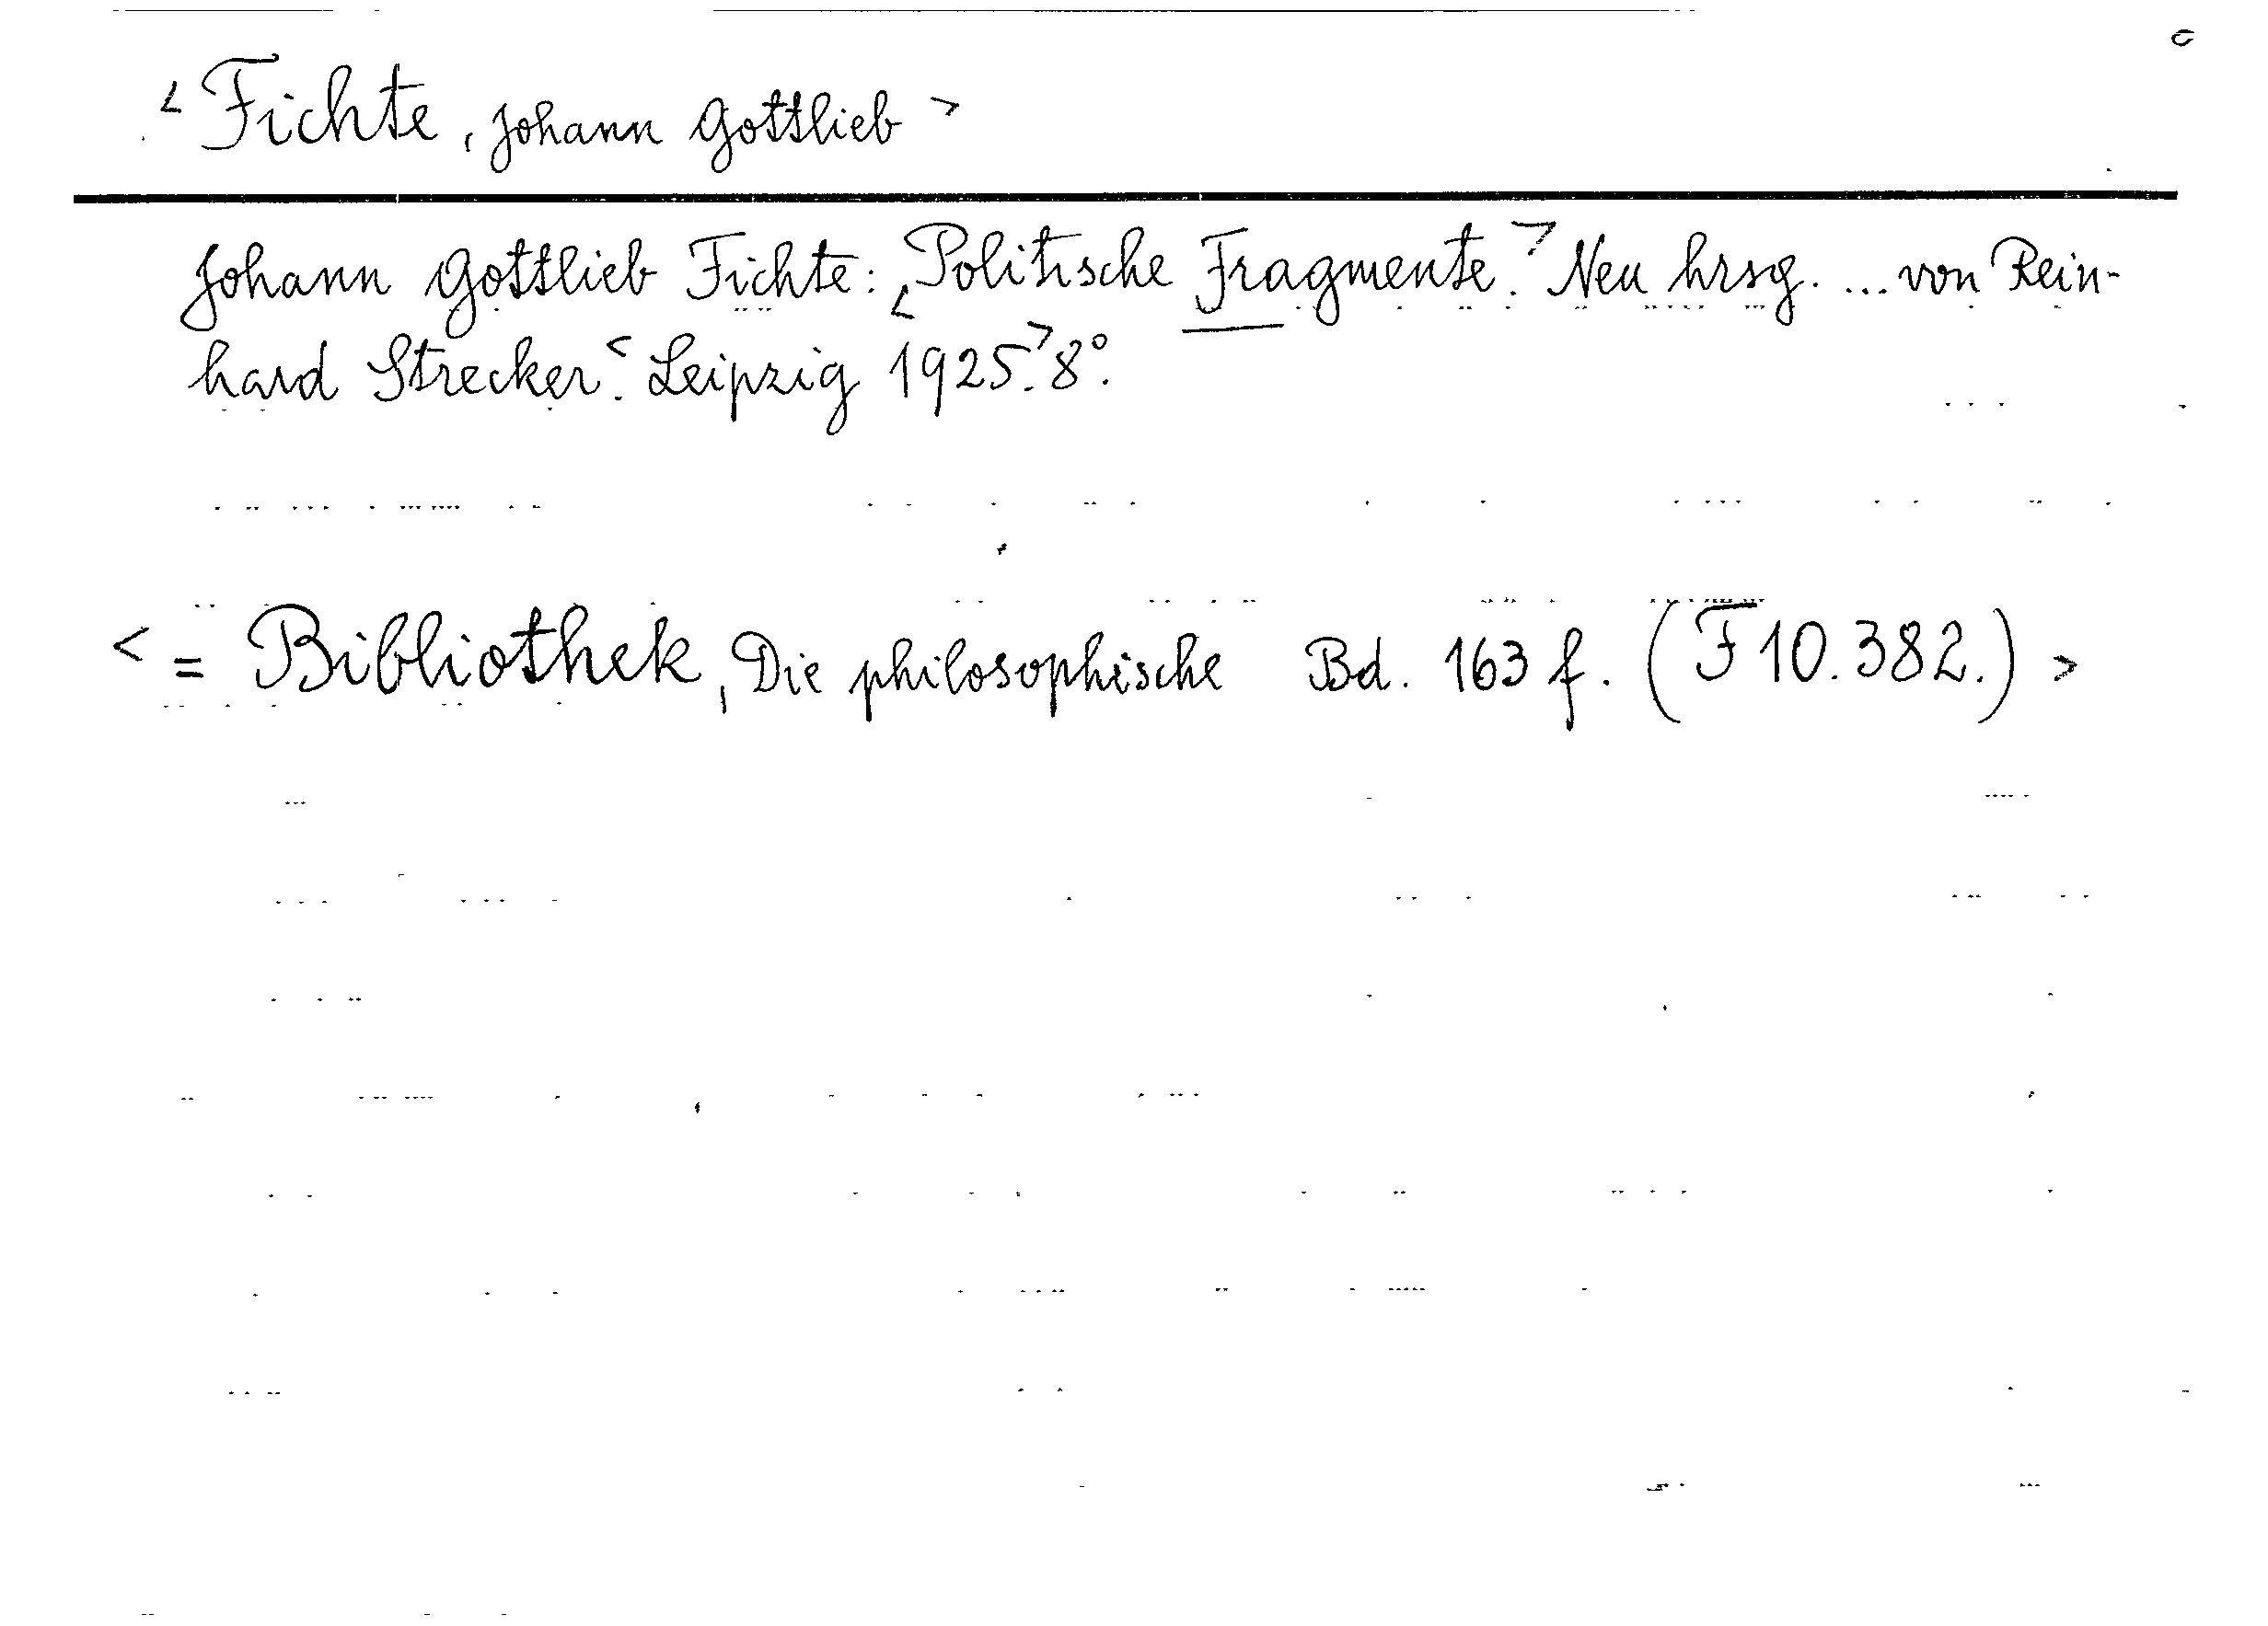 < Fichte, Johann Gottlieb >
Johann Gottlieb Fichte: <Politische Fragmente.> Neu hrsg. ... von Rein-
hard Strecker. < Leipzig 1925.> 8°.
< = Bibliothek, Die philosophische Bd. 163 f. (F 10.382.) >